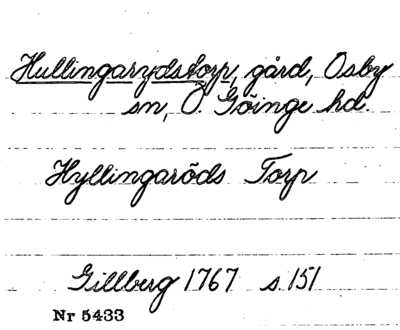 Hullingarydstorp, gård, Osby
sn, Ö. Göinge hd.
Hyllingaröds Torp
Gillberg 1767 s 151
Nr 5433